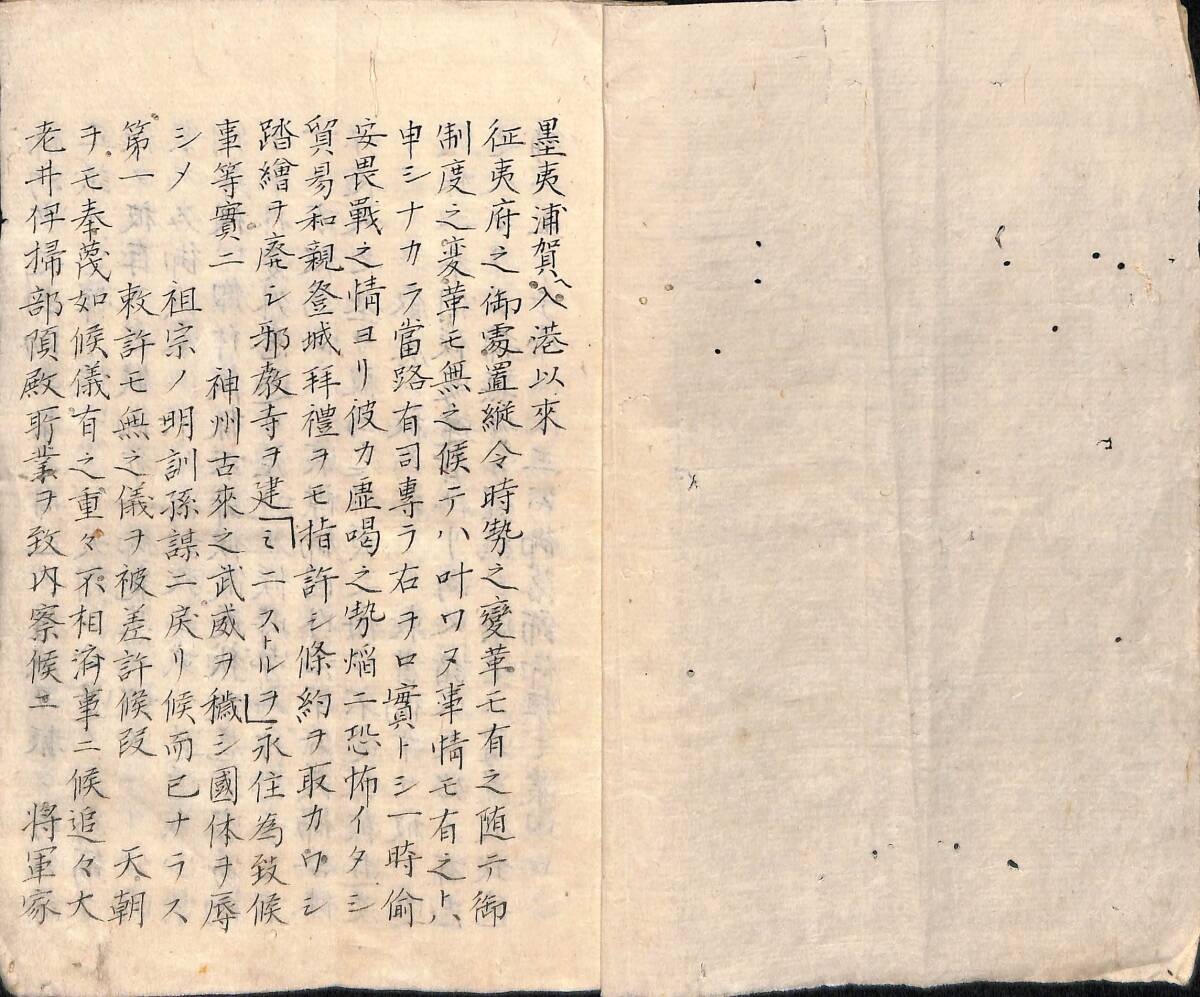 墨夷浦賀ヘ入港以來
征夷府之御處置縦令時勢之變革モ有之随テ御
制度之変革モ無之候テハ叶ワヌ事情モ有之トハ
申シナカラ當路有司專ラ右ヲ口實トシ一時偷
安畏戰之情ヨリ彼カ虚喝之勢焔ニ恐怖イタシ
貿易和親登城拜禮ヲモ指許シ條約ヲ取カワシ
踏繪ヲ廃シ邪教寺ヲ建ミニストルヲ永住為致候
事等實ニ 神州古來之武威ヲ穢シ國体ヲ辱
シメ 祖宗ノ明訓孫謀ニ戻リ候而已ナラス
第一 敕許モ無之儀ヲ被差許候段 天朝
ヲモ奉蔑如候儀有之重々不相濟事ニ候追々大
老井伊掃部頭殿所業ヲ致内察候ニ 將軍家